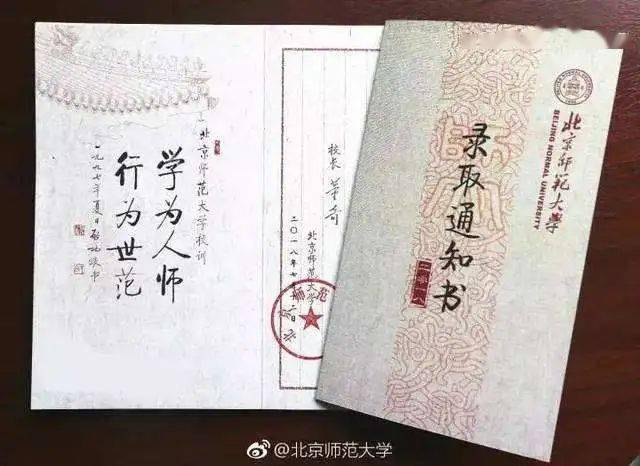 北京师范大学校训
学为人师
行为世范
一九九七年夏日启功敬书
校长 董奇
北京师范大学
二〇一八年七月
录取通知书
二零一八
北京师范大学
BEIJING NORMAL UNIVERSITY
@北京师范大学